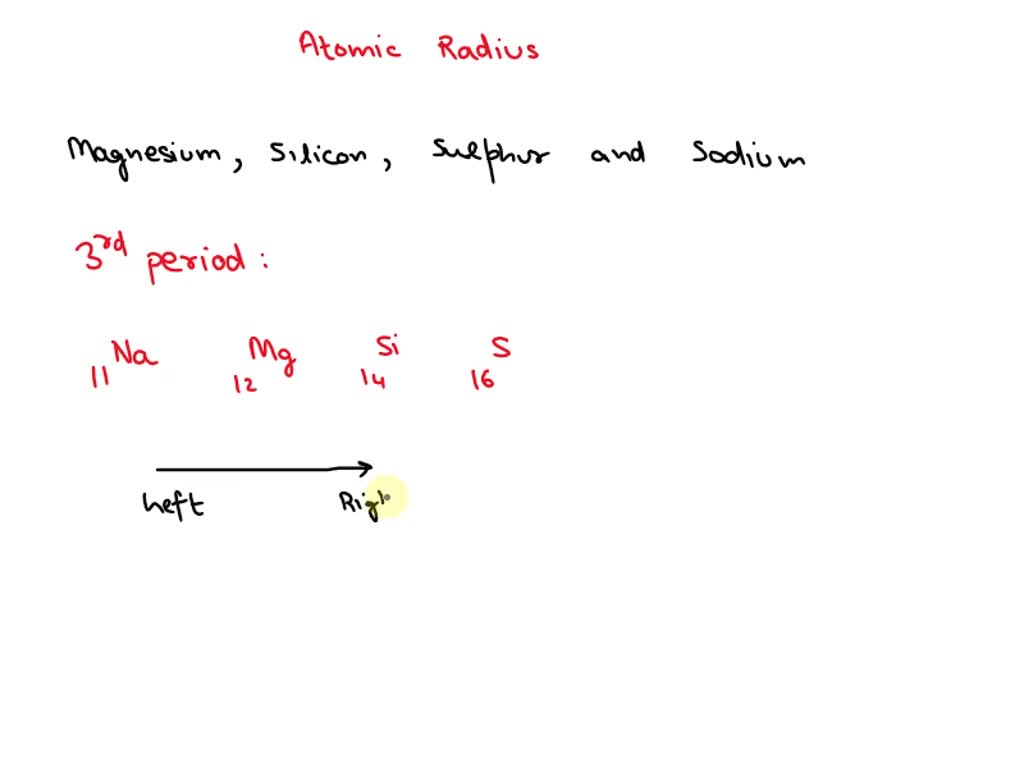 Atomic Radius
Magnesium, Silicon, Sulphur and Sodium
3rd period :
11Na 12Mg 14Si 16S
Left Righ